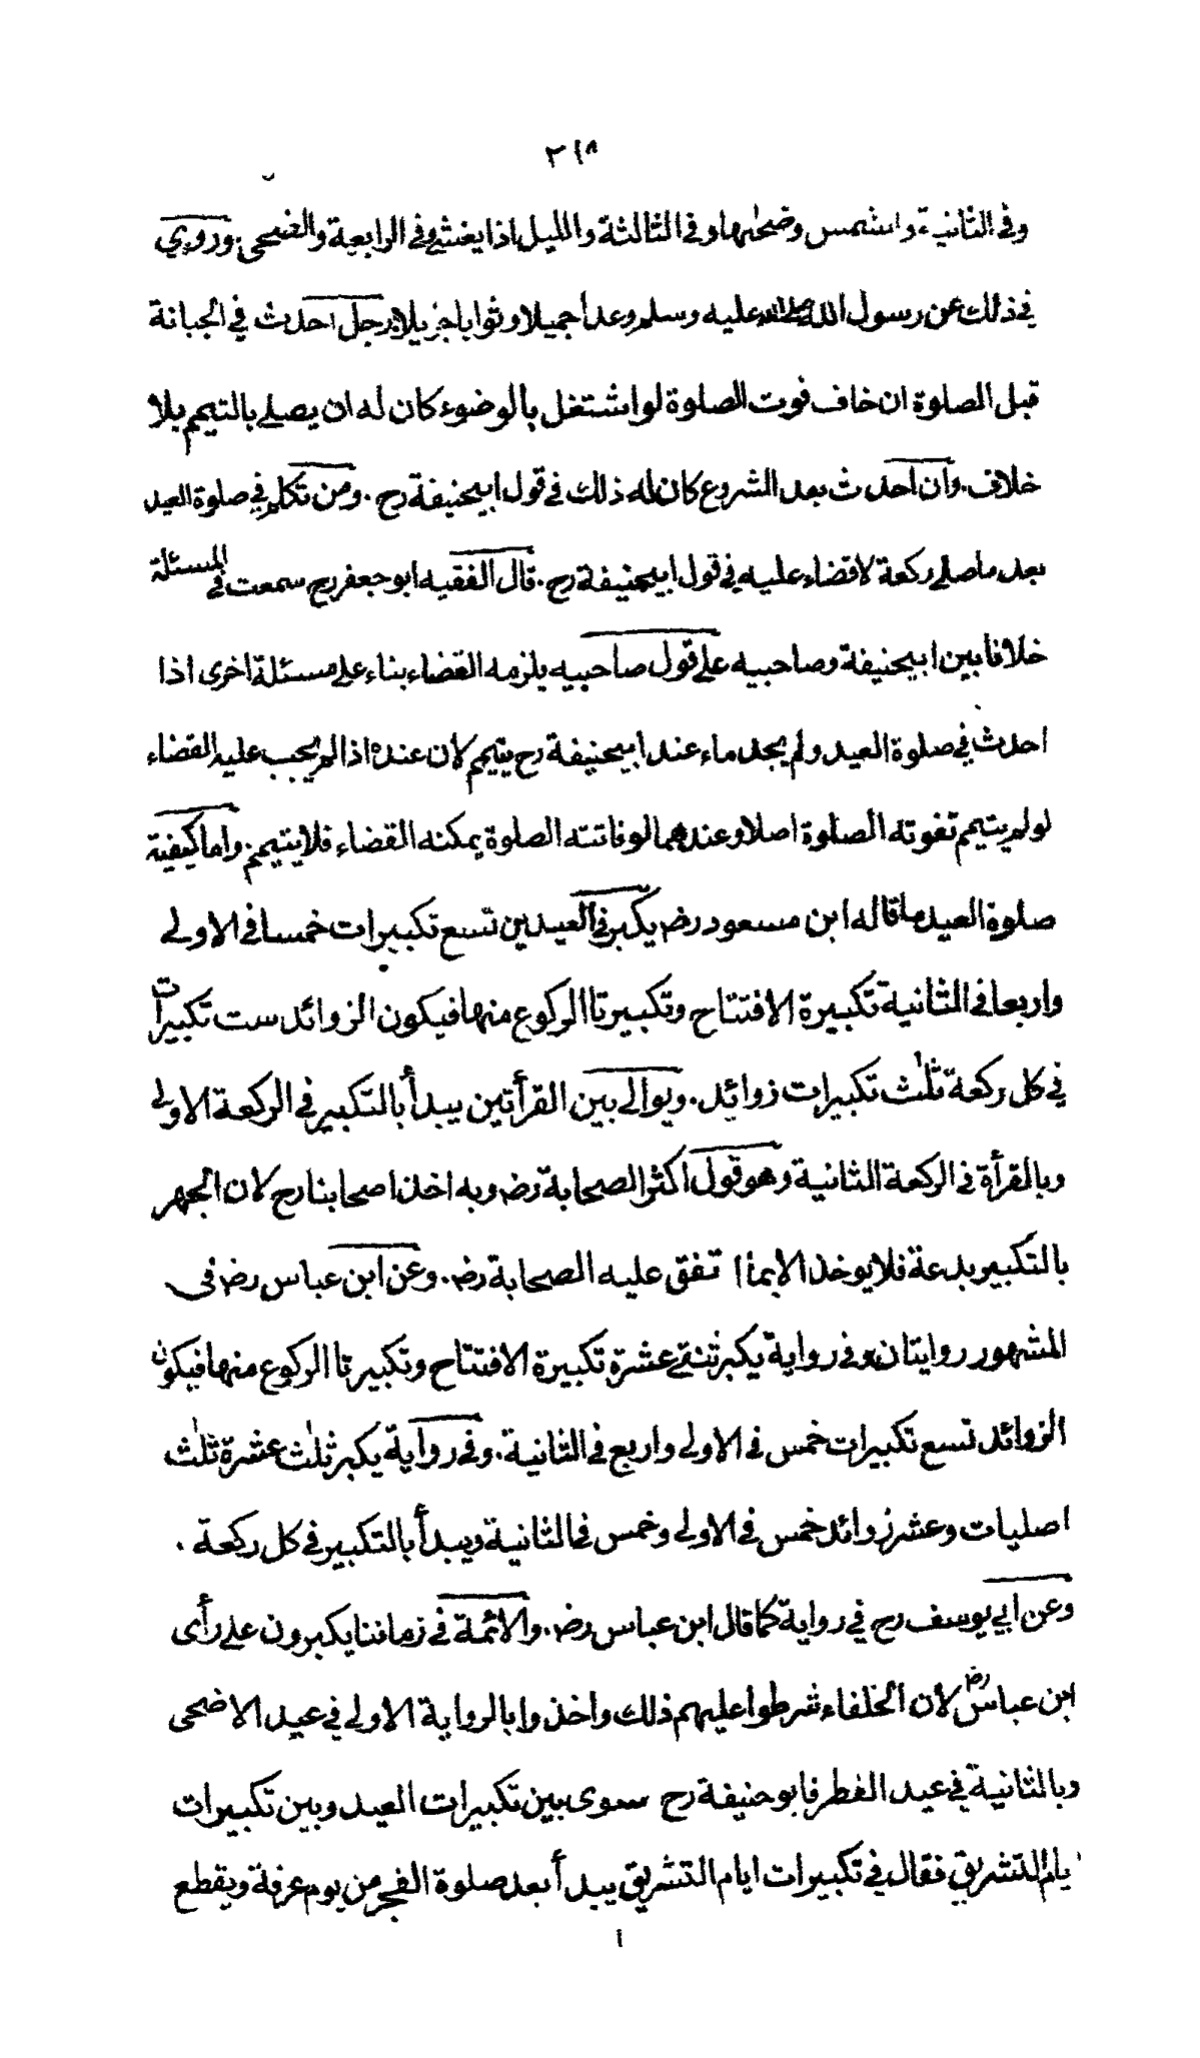 ٢١٨
وفى الثانية والشمس وضحٰها وفى الثالثة والليل اذا يغشى وفى الرابعة والضحى وروي
في ذلك عن رسول الله صلى الله عليه وسلم وعدا جميلا وثوابا جزيلا رجل احدث في الجبانة
قبل الصلوة ان خاف فوت الصلوة لو اشتغل بالوضوء كان له ان يصلى بالتيمم بلا
خلاف. وان احدث بعد الشروع كان له ذلك فى قول ابيحنيفة رح. ومن تكلم في صلوة العيد
بعد ما صلى ركعة لا قضاء عليه في قول ابيحنيفة رح. قال الفقيه ابو جعفر رح سمعت فى المسئلة
خلافا بين ابيحنيفة وصاحبيه على قول صاحبيه يلزمه القضاء بناء على مسئلة اخرى اذا
احدث في صلوة العيد ولم يجد ماء عند ابيحنيفة رح يتيمم لان عنده اذا لم يجب عليه القضاء
لو لم يتيمم تفوته الصلوة اصلا وعندهما لو فاتته الصلوة يمكنه القضاء فلا يتيمم. واما كيفية
صلوة العيد ما قاله ابن مسعود رض يكبر فى العيدين تسع تكبيرات خمسا فى الاولى
واربعا فى الثانية تكبيرة الافتتاح وتكبيرتا الركوع منها فيكون الزوائد ست تكبيرات
في كل ركعة ثلٰث تكبيرات زوائد. ويوالى بين القرأتين يبدأ بالتكبير فى الركعة الاولى
وبالقرأة فى الركعة الثانية وهو قول اكثر الصحابة رض وبه اخذ اصحابنا رح لان الجهر
بالتكبير بدعة فلا يوخذ الا بما اتفق عليه الصحابة رض. وعن ابن عباس رض فى
المشهور روايتان وفى رواية يكبر ثنتى عشرة تكبيرة الافتتاح وتكبيرتا الركوع منها فيكون
الزوائد تسع تكبيرات خمس فى الاولى واربع فى الثانية. وفى رواية يكبر ثلٰث عشرة ثلٰث
اصليات وعشر زوائد خمس فى الاولى وخمس فى الثانية ويبدأ بالتكبير فى كل ركعة.
وعن ابي يوسف رح في رواية كما قال ابن عباس رض. والائمة فى زماننا يكبرون على رأى
ابن عباس رض لان الخلفاء شرطوا عليهم ذلك واخذوا بالرواية الاولى في عيد الاضحى
وبالثانية في عيد الفطر فابو حنيفة رح سوى بين تكبيرات العيد وبين تكبيرات
ايام التشريق فقال في تكبيرات ايام التشريق يبدأ بعد صلوة الفجر من يوم عرفة ويقطع